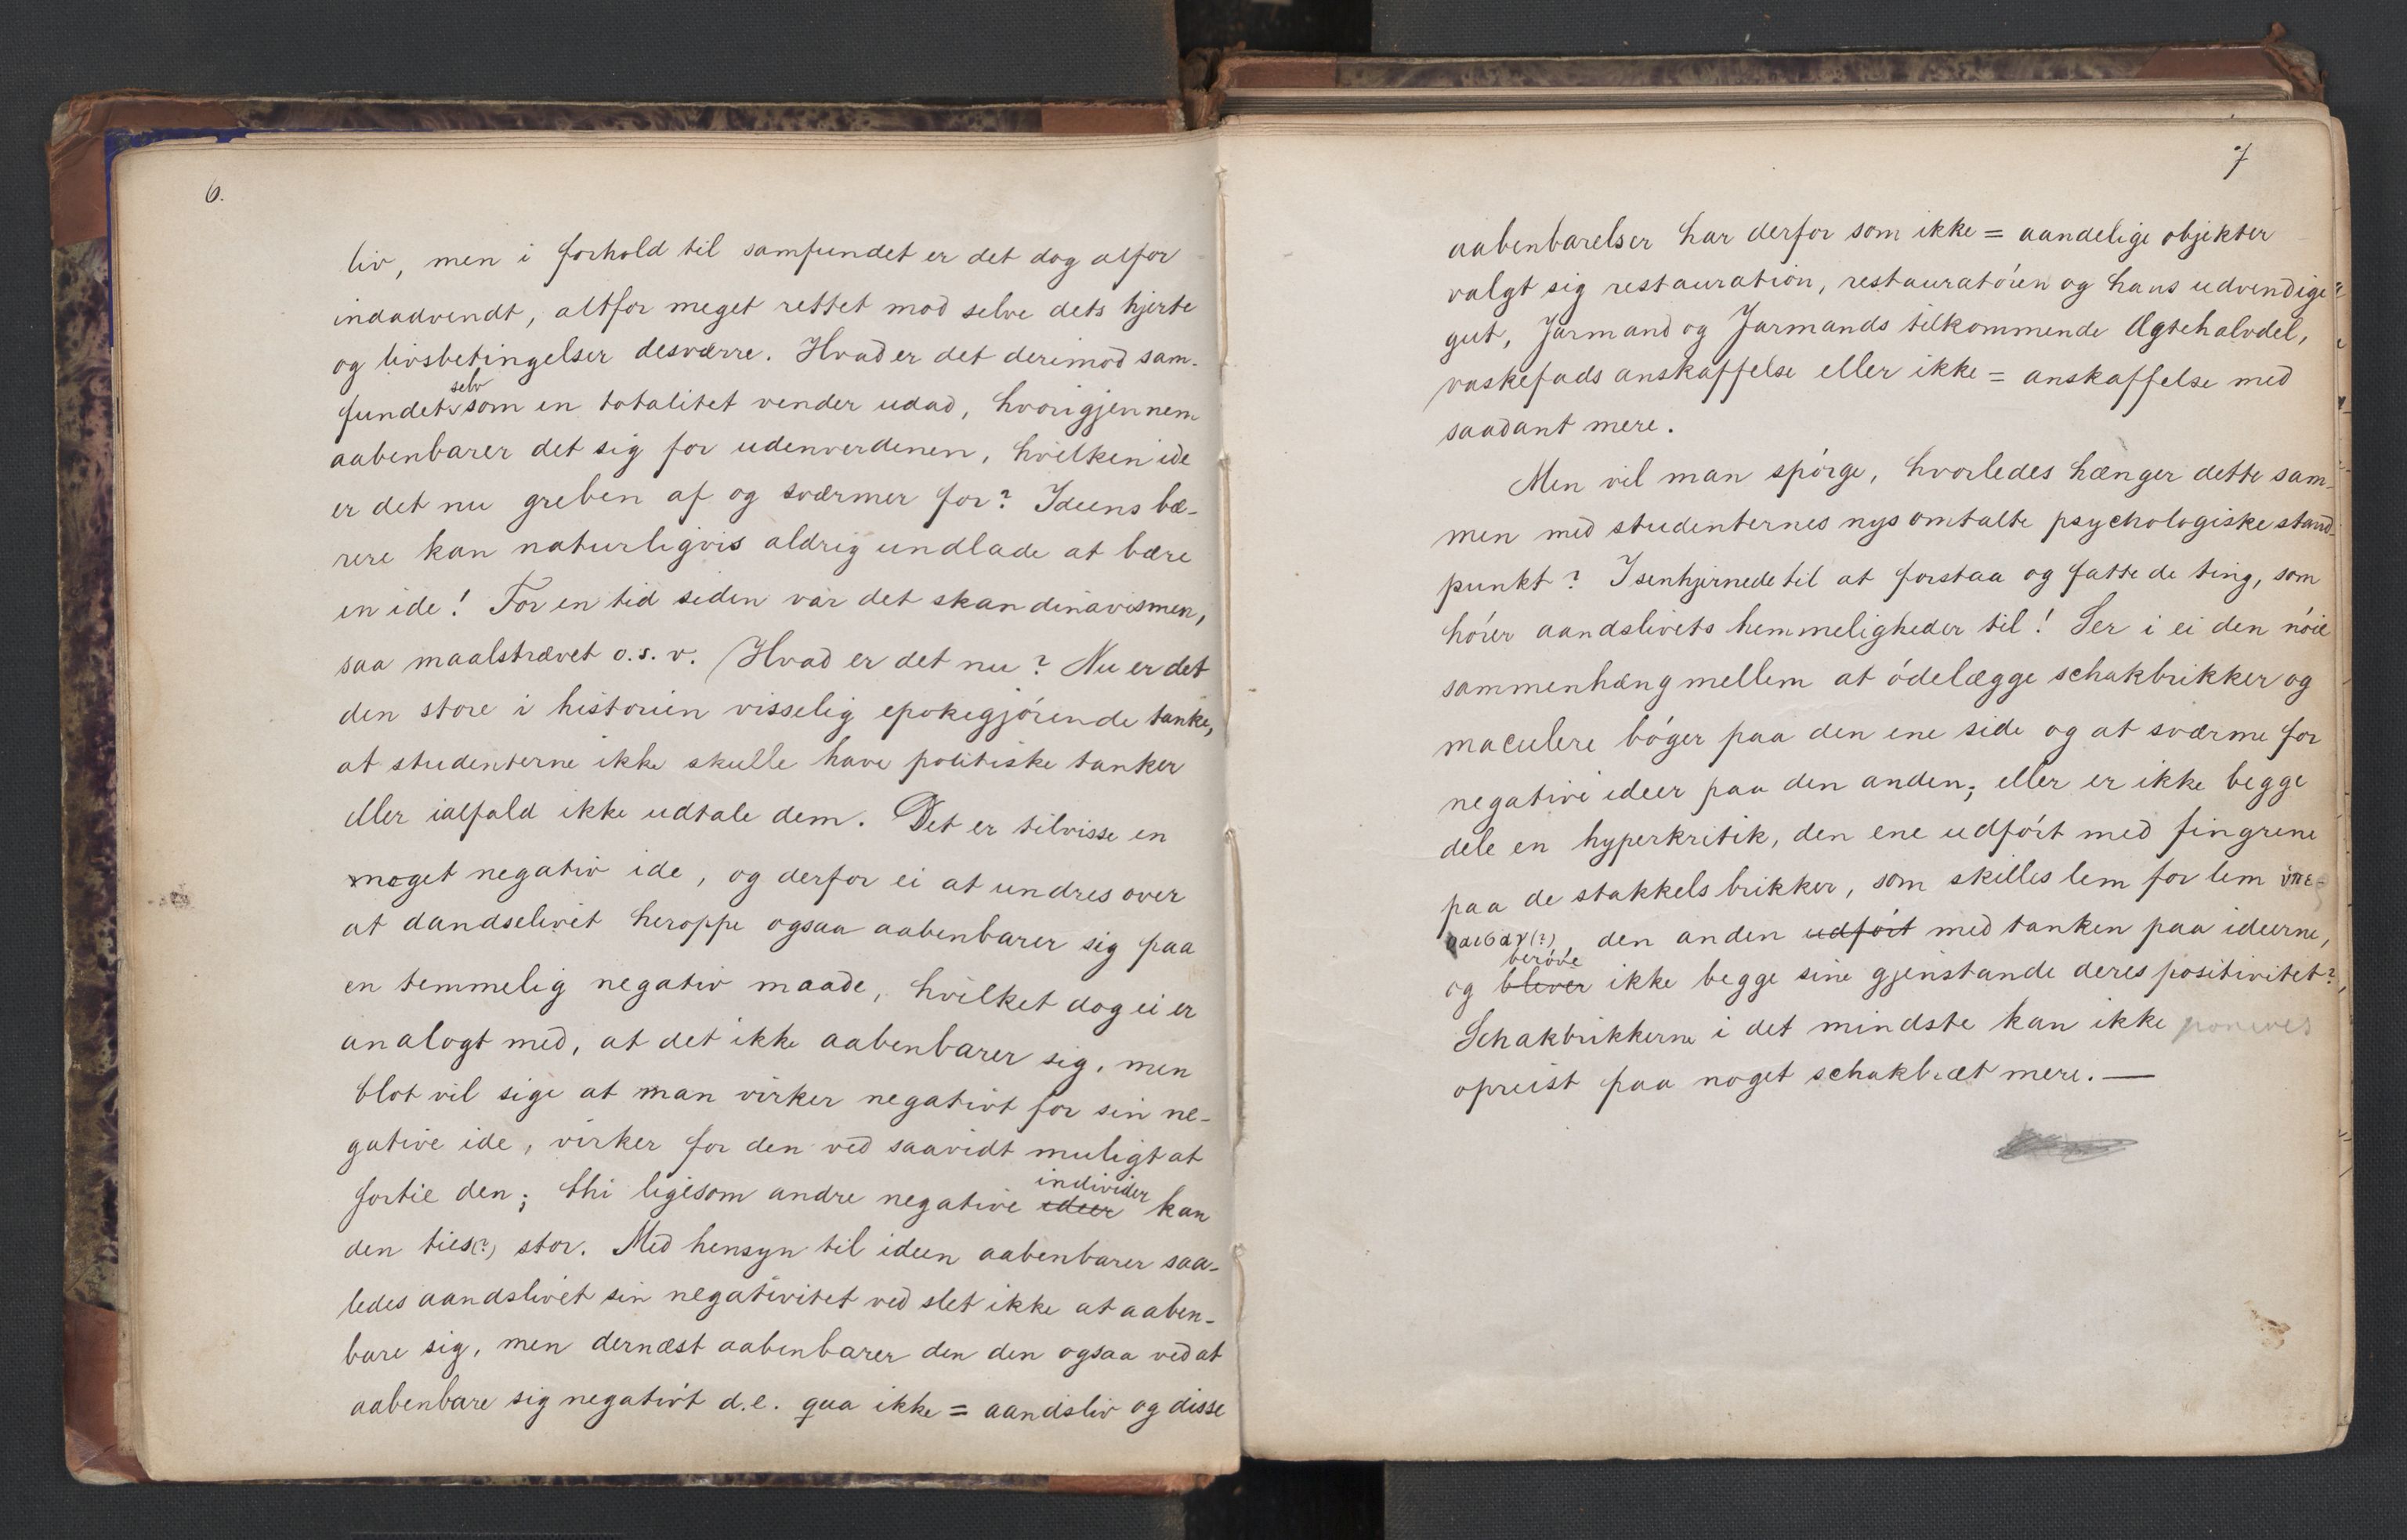 6.
liv, men i forhold til samfundet er det dog alfor
indadvendt, altfor meget rettet mod selve dets hjerte
og livsbetingelser desværre. Hvad er det derimod sam-
selv
fundet som en totalitet vender udad, hvorigjennem
aabenbarer det sig for udenverdenen, hvilken ide
er det nu greben af og sværmer for? Ideens bæ-
rere kan naturligvis aldrig undlade at bære
en ide! For en tid siden var det skandinavismen,
saa maalstrævet o.s.v. Hvad er det nu? Nu er det
den store i historien visselig epokegjórende tanke,
at studenterne ikke skulle have politiske tanker
eller ialfald ikke udtale dem. Det er tilvisse en
meget negativ ide, og derfor ei at undres over
at aandslivet heroppe ogsaa aabenbarer sig paa
en temmelig negativ maade, hvilket dog ei er
analogt med, at det ikke aabenbarer sig, men
blot vil sige at man virker negativt for sin ne-
gative ide, virker for den ved saavidt muligt at
individer
fortie den; thi ligesom andre negative ideer kan
den ties(?) stor. Med hensyn til ideen aabenbarer saa-
ledes aandslivet sin negativitet ved slet ikke at aaben-
bare sig, men dernæst aabenbarer den den ogsaa ved at
aabenbare sig negativt d.e. qua ikke = aandsliv og disse
7
aabenbarelser har derfor som ikke = aandelige objekter
valgt sig restauration, restauratóren og hans udvendige
gut, Jarmand og Jarmands tilkommende Ægtehalvdel,
vaskefads anskaffelse eller ikke = anskaffelse med
saadant mere.
Men vil man spórge, hvorledes hænger dette sam-
men med studenternes nys omtalte psychologiske stand-
punkt? I senhjernede til at forstaa og fatte de ting, som
hórer aandslivets hemmeligheder til! Ser i ei den nóie
sammenhæng mellem at ódelægge schakbrikker og
maculere bóger paa den ene side og at sværme for
negative ideer paa den anden; eller er ikke begge
dele en hyperkritik, den ene udfórt med fingrene
paa de stakkels brikker, som skilles lem for lem
(?), den anden udfórt med tanken paa ideerne,
beróve
og bliver ikke begge sine gjenstande deres positivitet?
Schakbrikkerne i det mindste kan ikke poneres
opreist paa noget schakbræt mere. —